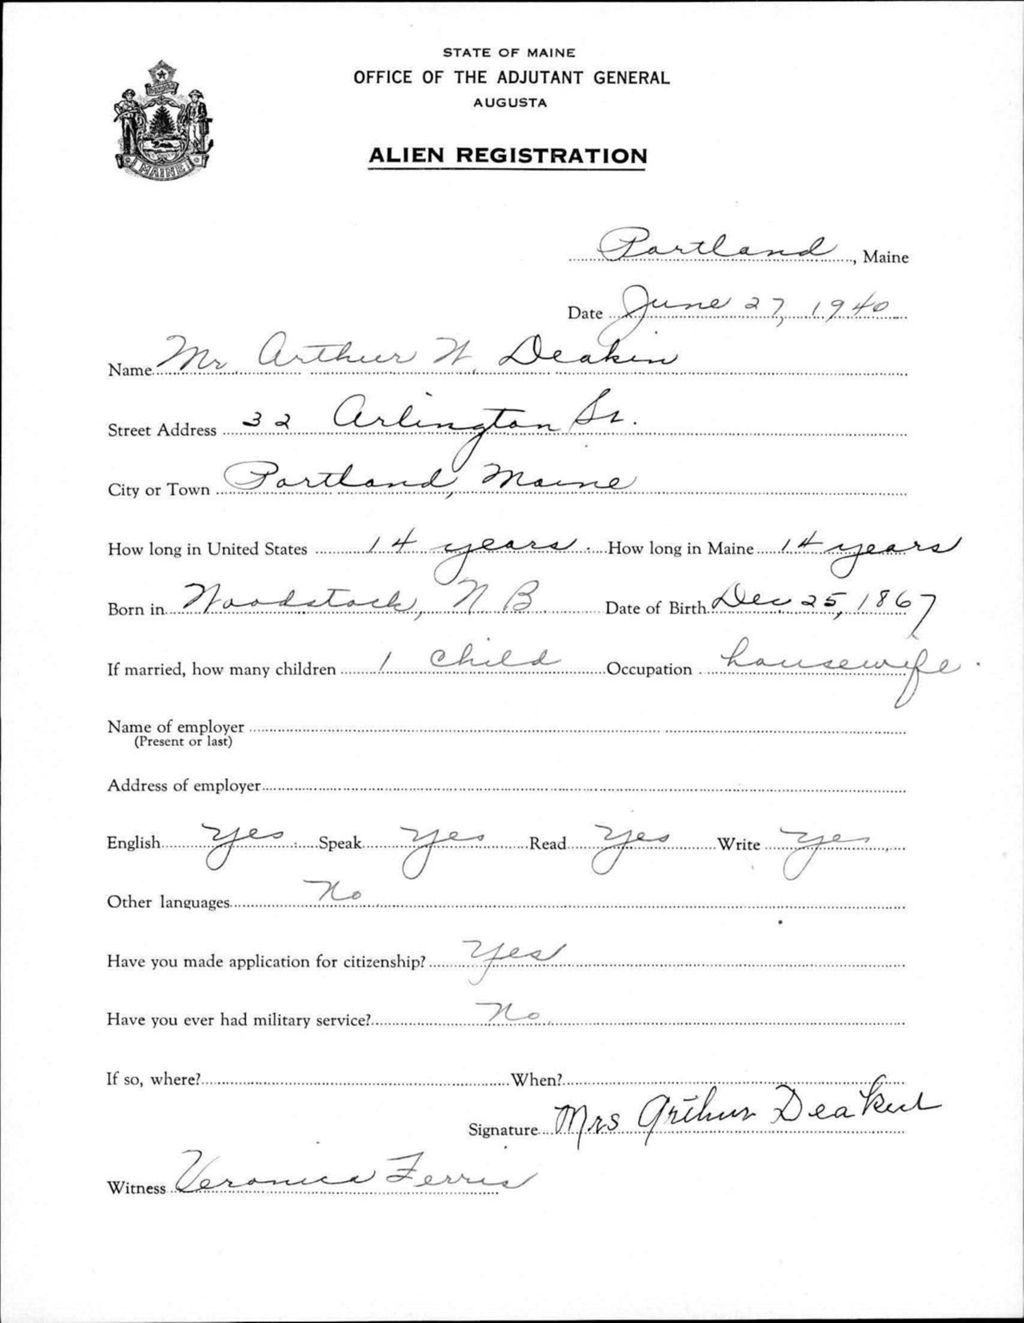 STATE OF MAINE
OFFICE OF THE ADJUTANT GENERAL
AUGUSTA
ALIEN REGISTRATION
MAINE
Portland, Maine
Date June 27, 1940
Name Mr. Arthur W. Deakin
Street Address 32 Arlington St.
City or Town Portland, Maine
How long in United States 14 years How long in Maine 14 years
Born in Woodstock, N B Date of Birth Dec 25, 1867
If married, how many children 1 child Occupation housewife.
Name of employer
(Present or last)
Address of employer
English yes Speak yes Read yes Write yes
Other languages No
Have you made application for citizenship? Yes
Have you ever had military service? No.
If so, where? When?
Signature Mrs Arthur Deakin
Witness Veronica Ferris